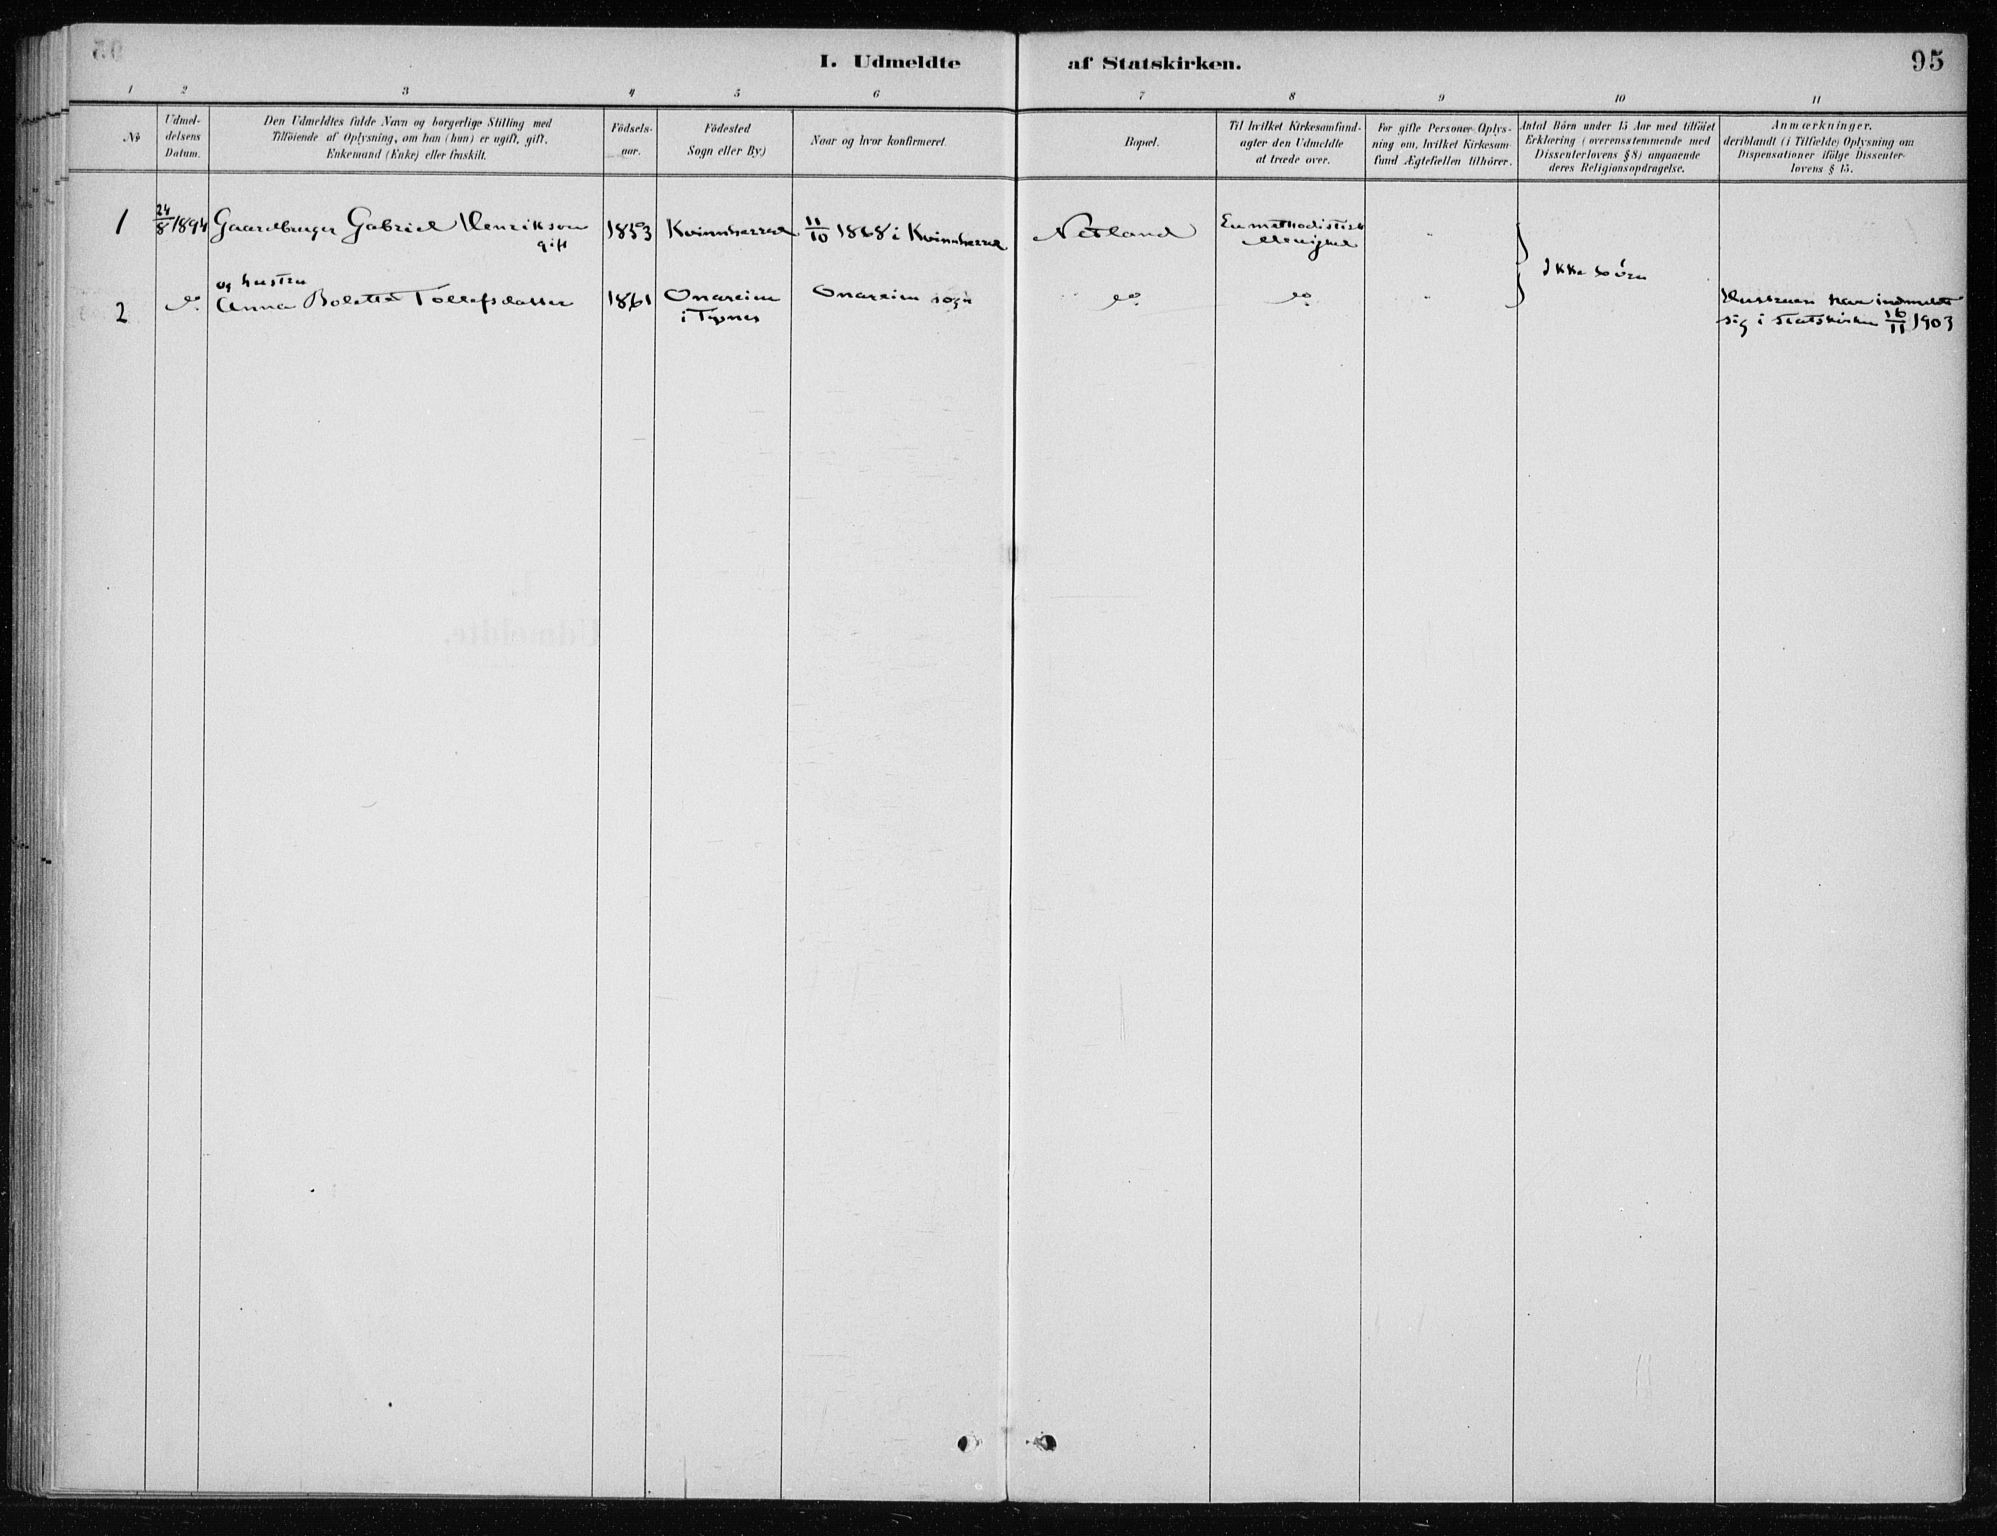 I. Udmeldte af Statskirken. 95
1 2 3 4 5 6 7 8 9 10 11
No
Udmel-
delsens
Datum.
Den Udmeldtes fulde Navn og borgerlige Stilling med
Tilföiende af Oplysning, om han (hun) er ugift, gift,
Enkemand (Enke) eller fraskilt.
Födsels-
aar.
Födested
Sogn eller By.)
Naar og hvor konfirmeret.
Bopæl.
Til hvilket Kirkesamfund-
agter den Udmeldte
at træde over.
For gifte Personer Oplys-
ning om, hvilket Kirkesam-
fund Ægtefællen tilhörer.
Antal Börn under 15 Aar med tilföiet
Erklæring (overensstemmende med
Dissenterlovens § 8) angaaende
deres Religionsopdragelse.
Anmærkninger.
deriblandt (i Tilfælde) Oplysning om
Dispensationer ifölge Dissenter-
lovens § 15.
1
24/8 1894
Gaardbruger Gabriel Henrikson
gift
1853
Kvinnherred
11/10 1868 i Kvinnherred
Netland
En methodistisk
Menighed
"
Ikke börn
2
do
og hustru
Anna Boletta Tollefsdatter
1861
Onareim
i Tysnes
Onareim sogn
do
do
"
Hustruen har indmeldt
sig i statskirken 16/11 1903